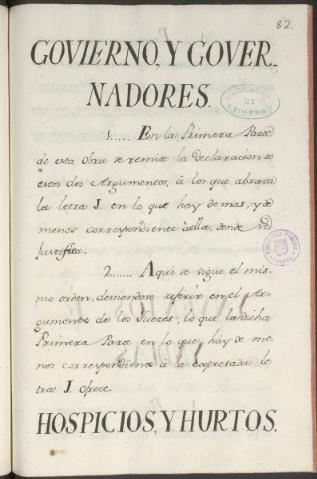 82.
GOVIERNO, Y GOVER-
NADORES.
1..... En la Primera Parte
de esta obra se remite la declaracion de
estos dos Argumentos, á los que abraza
la letra J. en lo que hay de mas, y de
menos correspondiente á ella, donde se
justifica.
2...... Aqui se sigue el mis-
mo orden, deviendose referir en el Ar-
gumento de los Jueces, lo que la dicha
Primera Parte en lo que hay de me-
nos correspondiente á la expresada le-
tra J. ofrece.
HOSPICIOS, Y HURTOS.